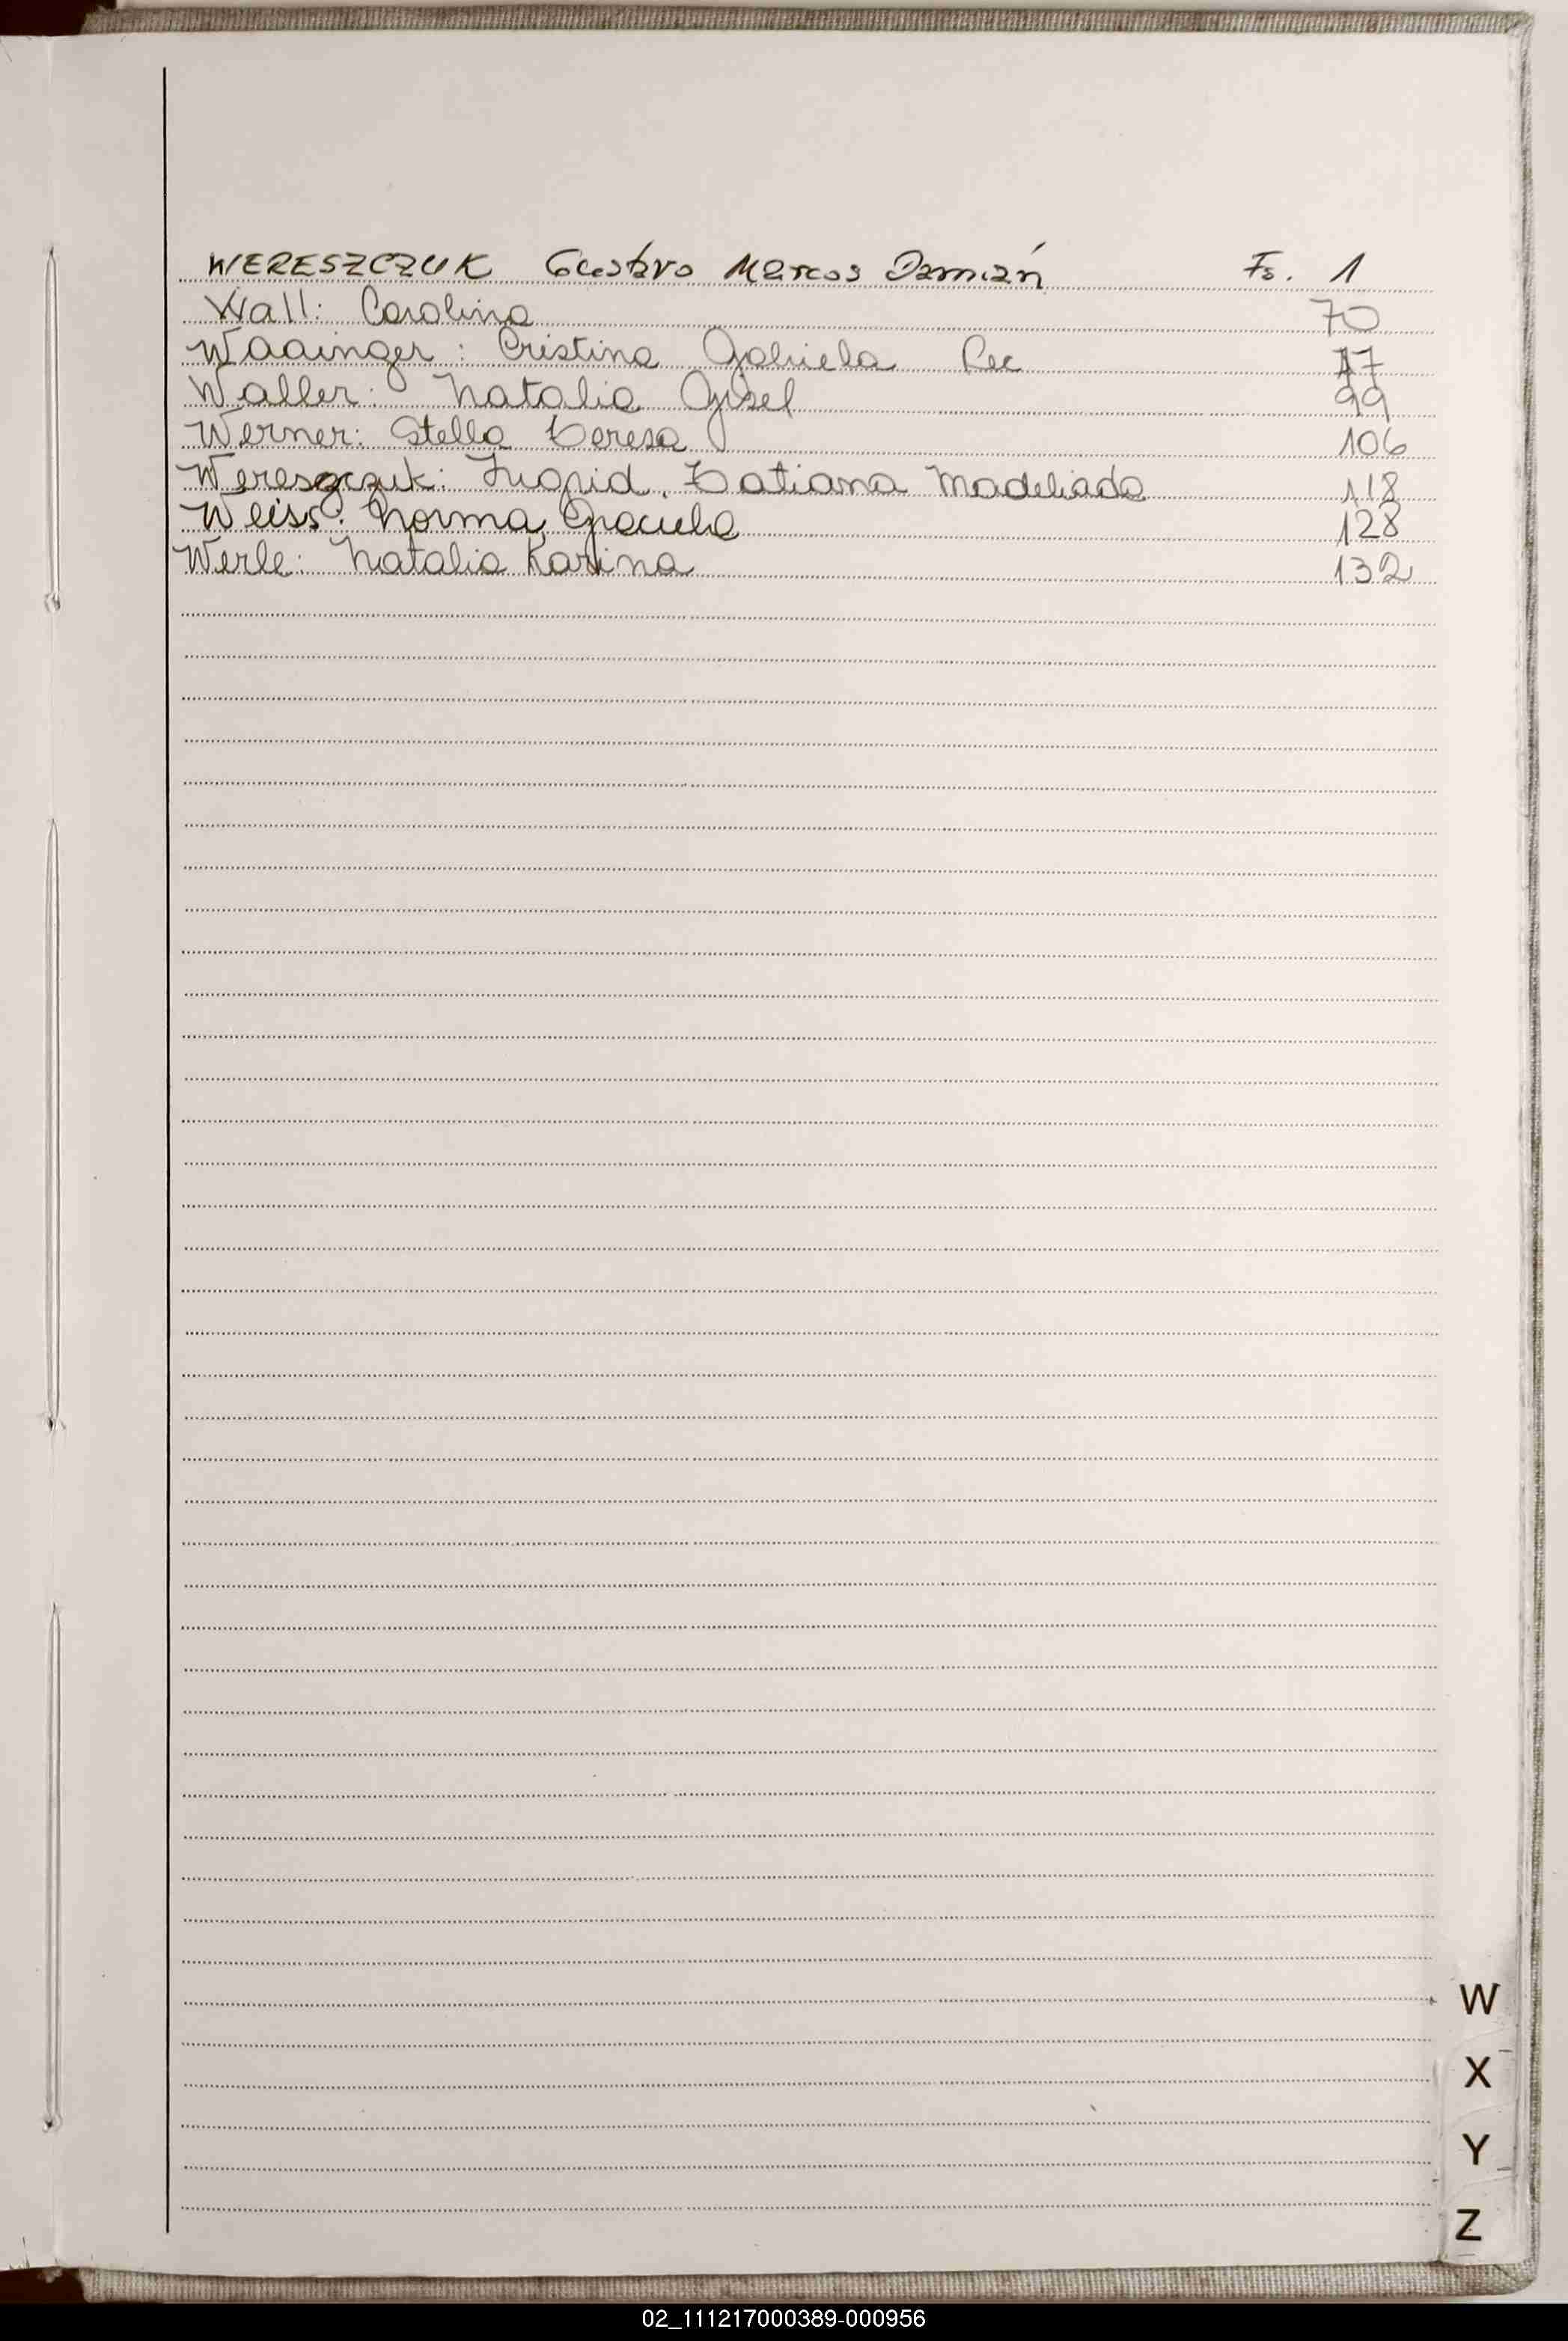 WERESZCZUK Gustavo Marcos Damián Fs. 1
Wall: Carolina 70
Waainger: Cristina Gabriela Rec 77
Waller: Natalia Gisel 99
Werner: Stella Teresa 106
Wereszczuk: Ingrid, Tatiana 118
Weiss: Norma, Graciela 128
Werle: Natalia Karina 132
W
X
Y
Z
02_111217000389-000956